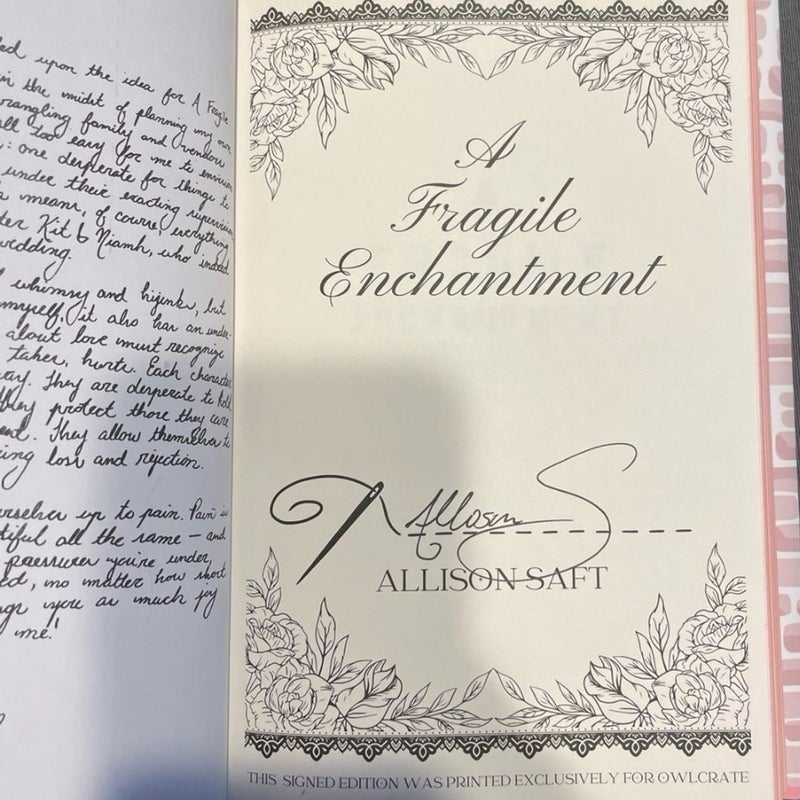 upon the idea for A Fragile
in the midst of planning my own
wrangling family and vendors
all too easy for me to envision
: one desperate for things to
under their exacting supervision
means, of course, everything
Kit & Niamh, who indeed
wedding.
whimsy and hijinks, but
myself, it also has an under-
about love must recognize
takes, hurts. Each character
They are desperate to hold
They protect those they care
They allow themselves to
loss and rejection.
up to pain. Pain is
all the same — and
pressures you're under,
no matter how short
you as much joy
me!
A
Fragile
Enchantment
Allison S
ALLISON SAFT
THIS SIGNED EDITION WAS PRINTED EXCLUSIVELY FOR OWLCRATE